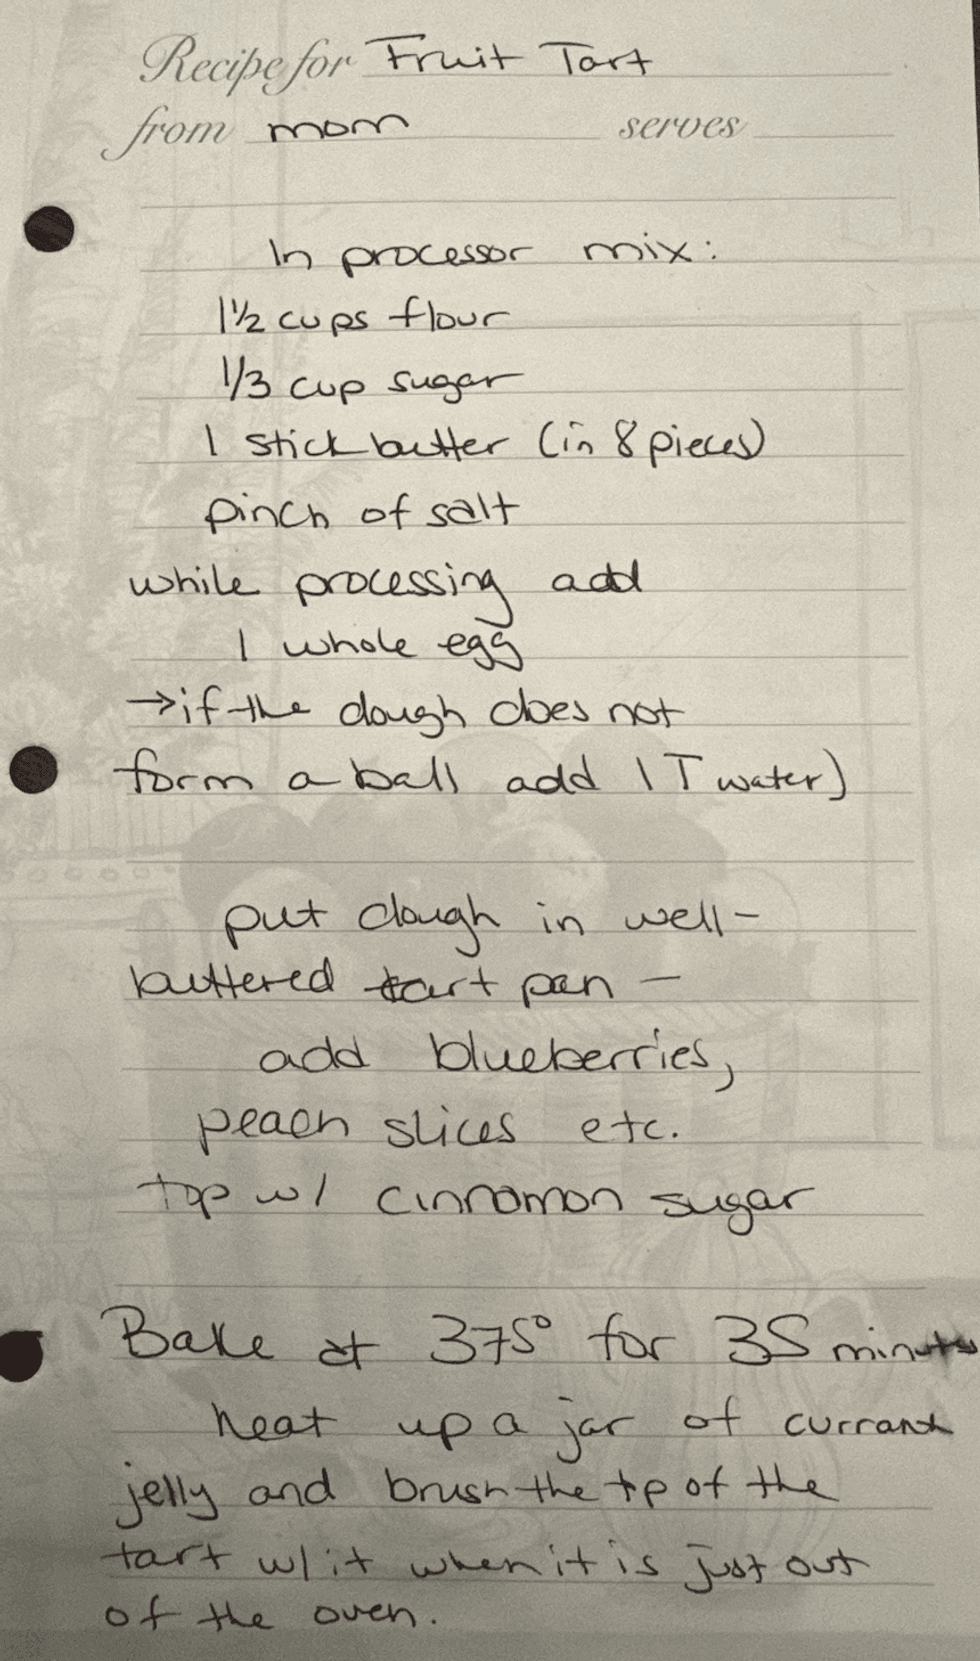 Recipe for Fruit Tart
from mom serves
In processor mix:
1 1/2 cups flour
1/3 cup sugar
1 stick butter (in 8 pieces)
pinch of salt
while processing add
1 whole egg
→if the dough does not
form a ball add 1 T water)
put dough in well-
buttered tart pan —
add blueberries,
peach slices etc.
top w/ cinnamon sugar
Bake at 375° for 35 minutes
heat up a jar of currant
jelly and brush the top of the
tart w/ it when it is just out
of the oven.